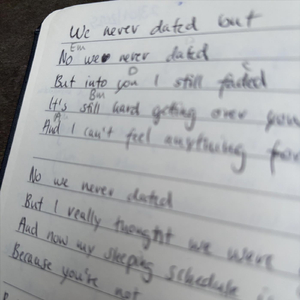 We never dated but
Em
No we never dated
D C
But into you I still faded
Bm
It's still hard getting over you
And I can't feel anything for
No we never dated
But I really thought we were
And now my sleeping schedule is
Because you're not